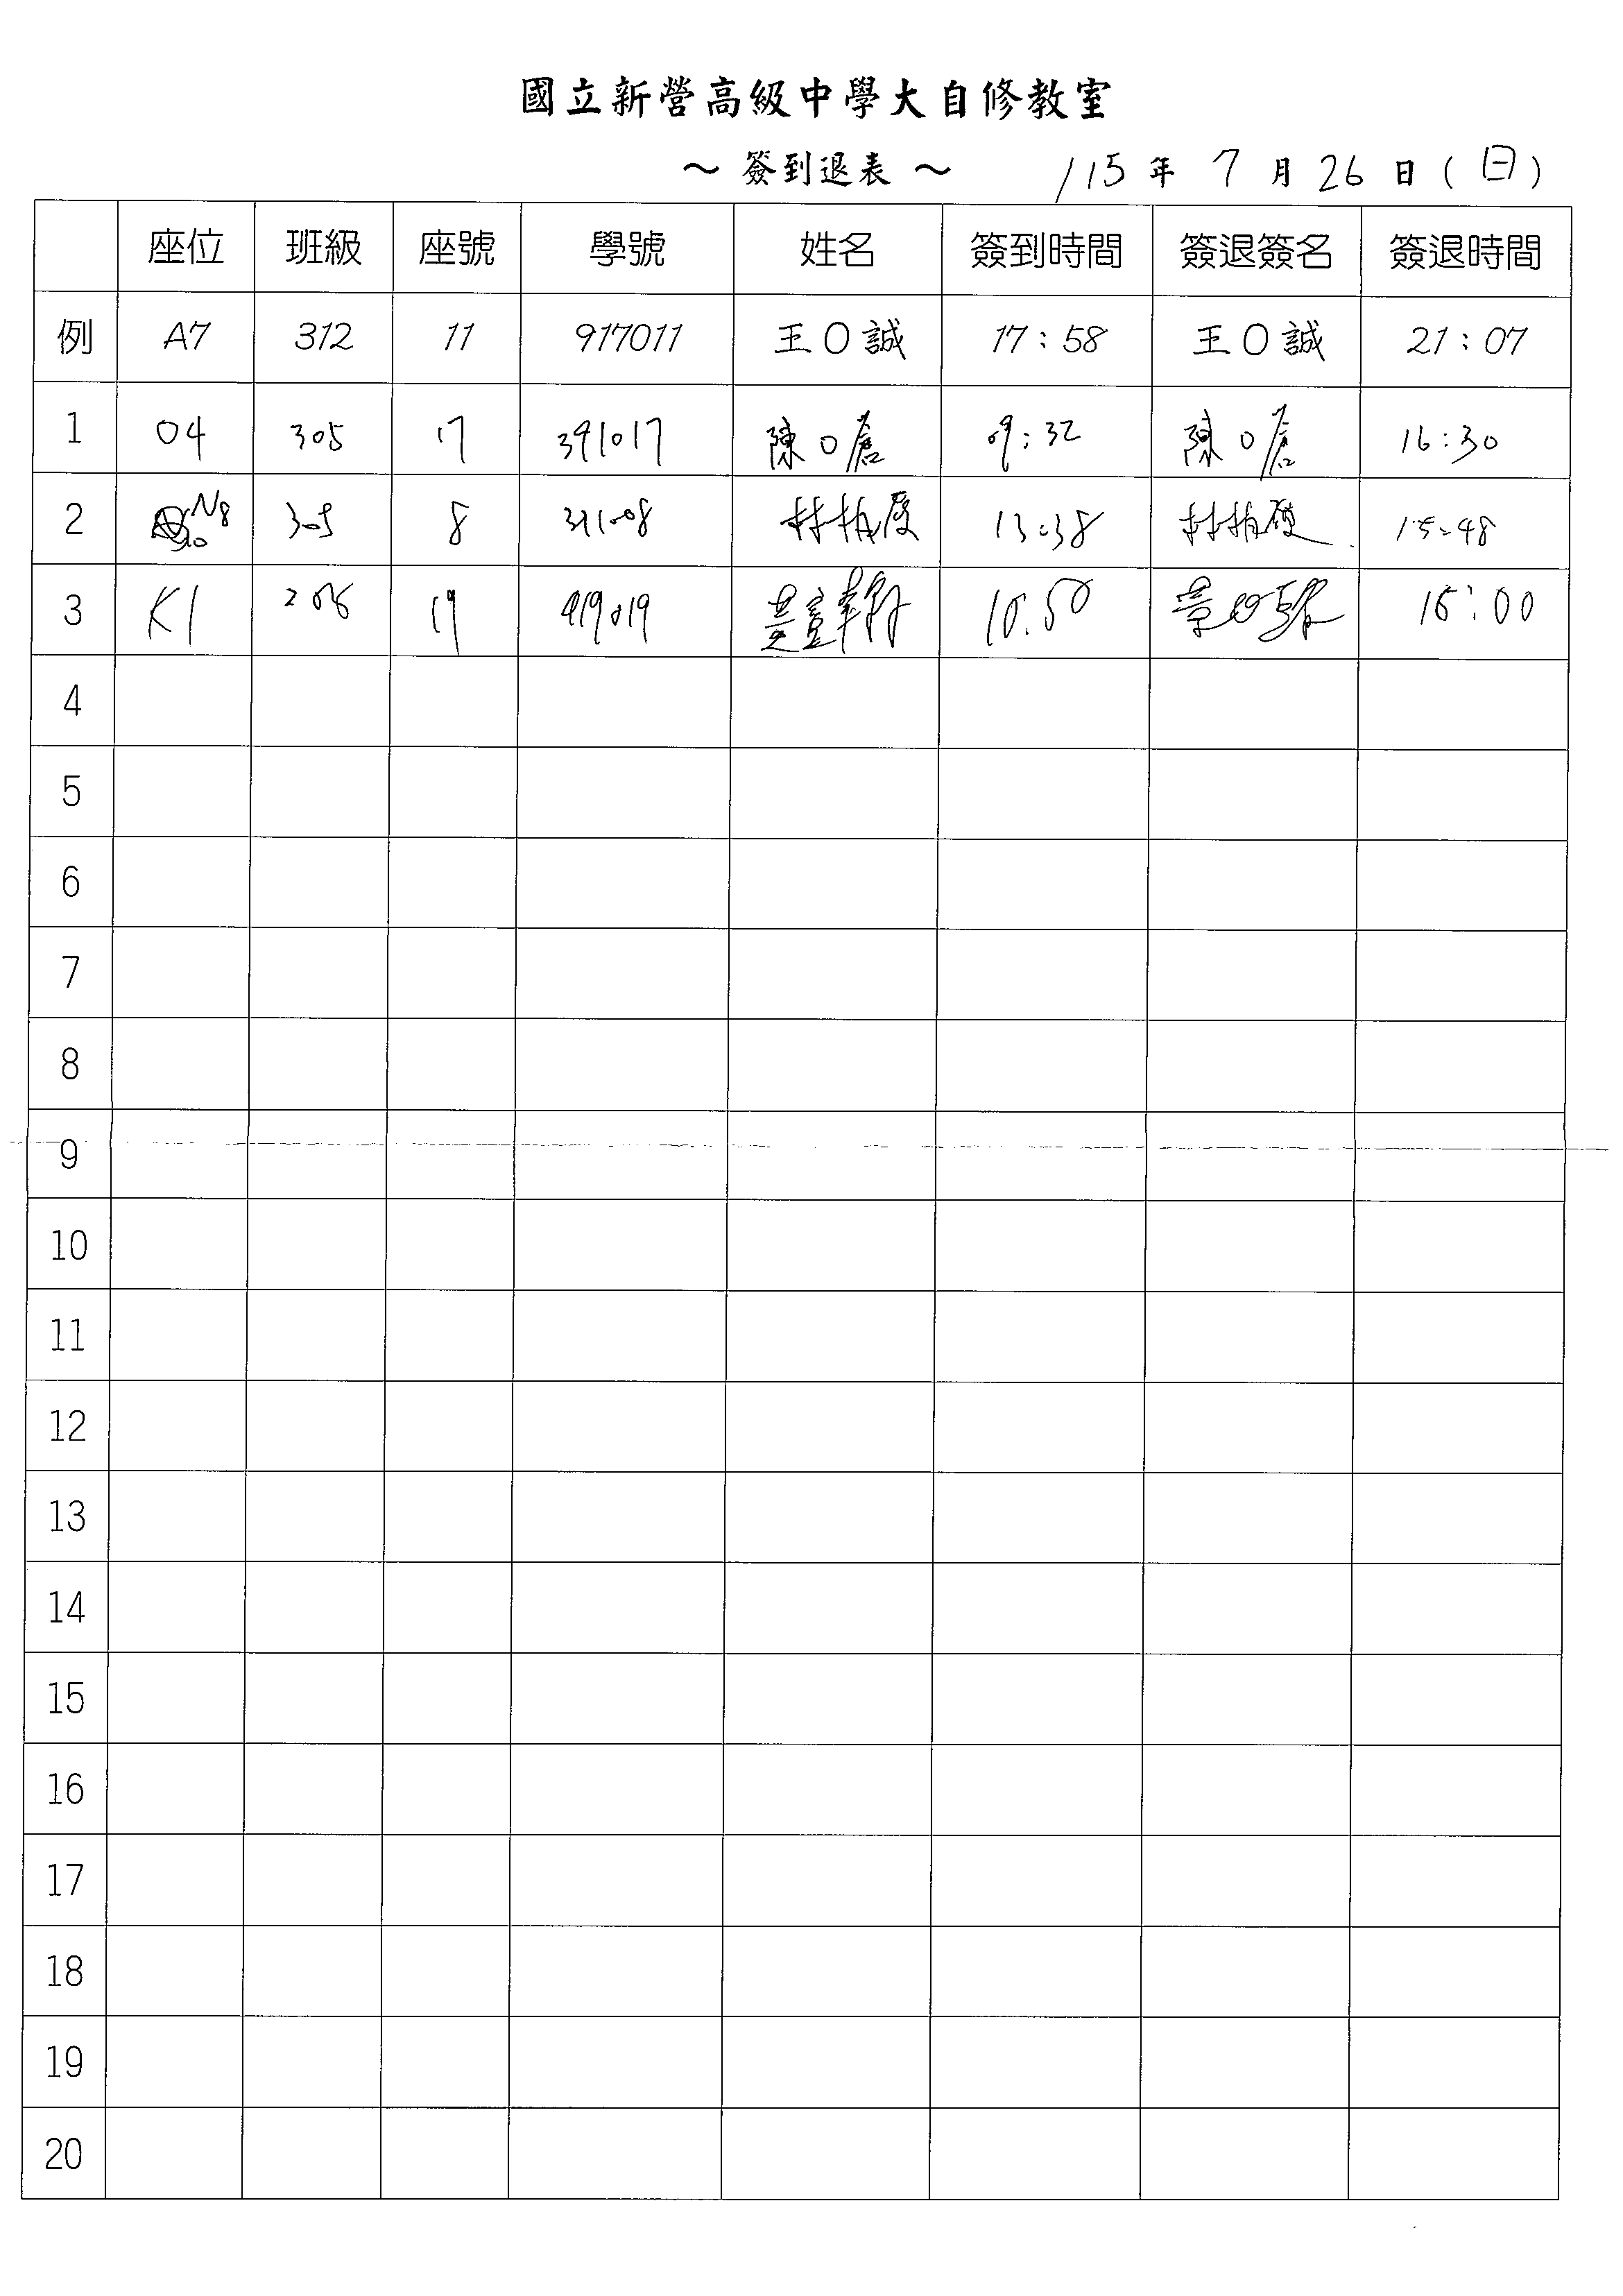 國立新營高級中學大自修教室
～ 簽到退表 ～ 115 年 7 月 26 日 ( 日 )
座位 班級 座號 學號 姓名 簽到時間 簽退簽名 簽退時間
例 A7 312 11 917011 王○誠 17:58 王○誠 21:07
1 04 305 17 391017 陳○ 09:32 陳○ 16:30
2 N8 305 8 林 13:38 林 15:48
3 K1 206 19 919019 10:50 :00
4
5
6
7
8
9
10
11
12
13
14
15
16
17
18
19
20